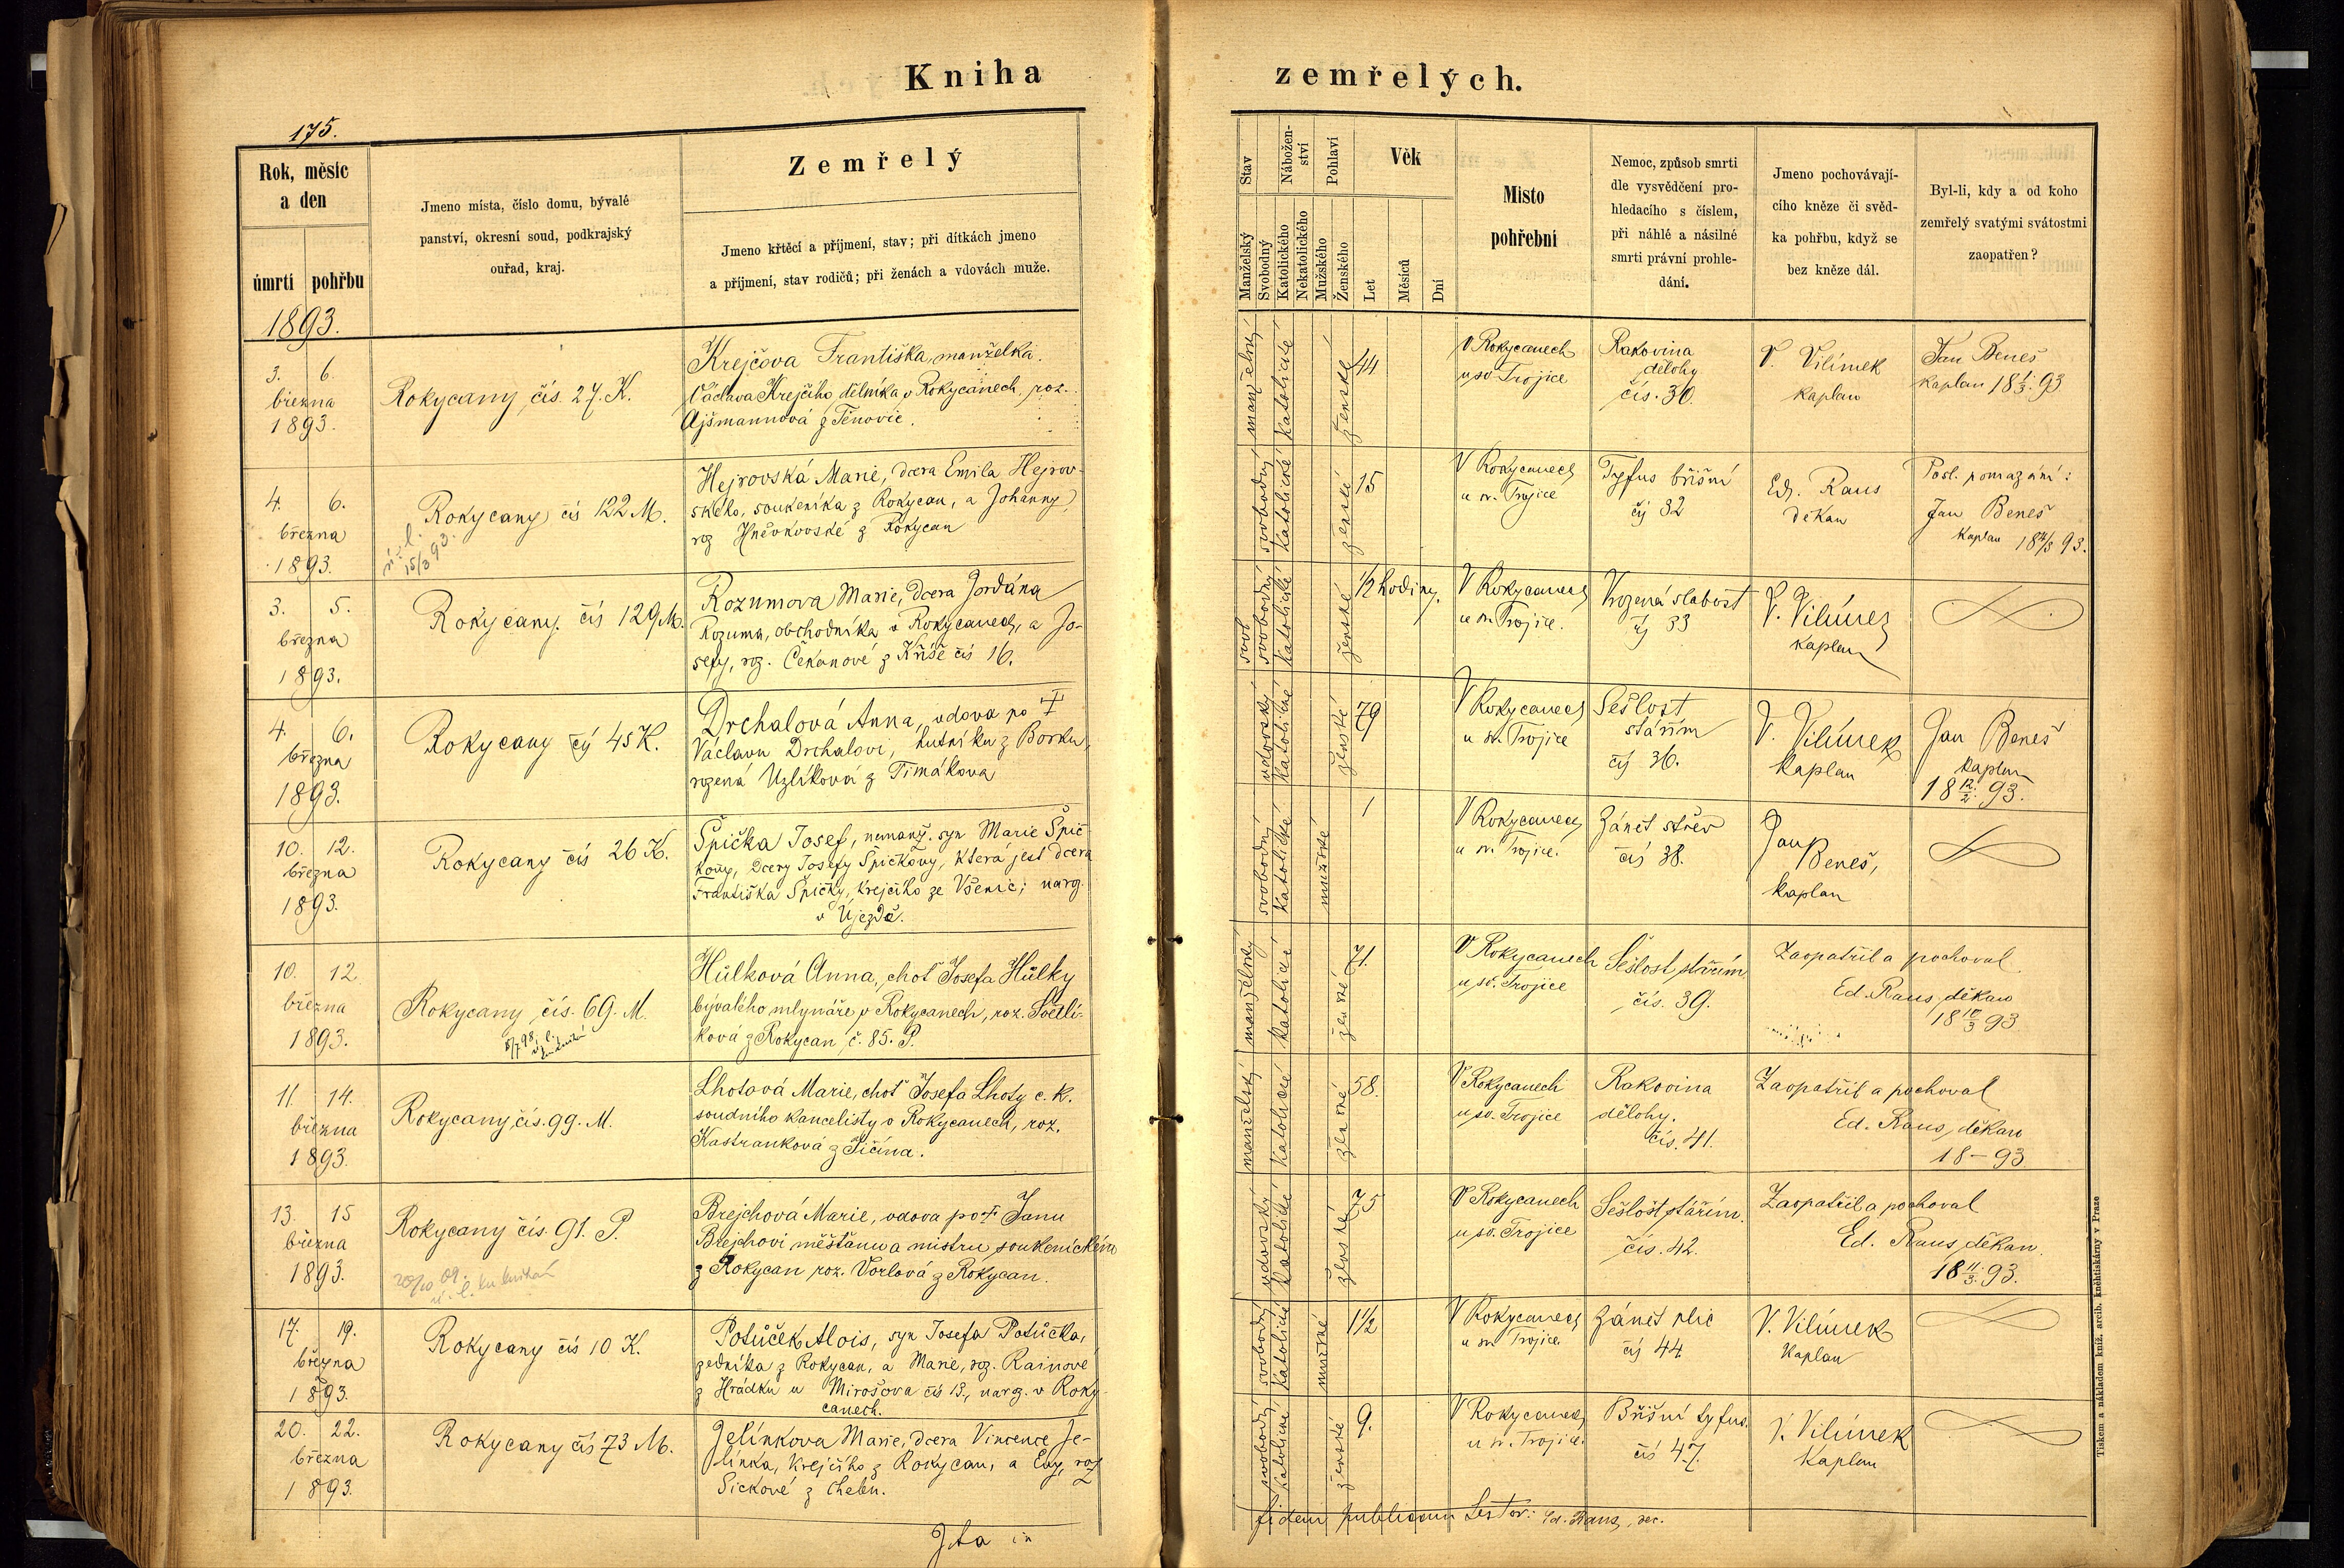 Kniha zemřelých.
175.
Rok, měsíc a den
úmrtí pohřbu
Jmeno místa, číslo domu, bývalé
panství, okresní soud, podkrajský
ouřad, kraj.
Zemřelý
Jmeno křtěcí a příjmení, stav; při dítkách jmeno
a příjmení, stav rodičů; při ženách a vdovách muže.
Stav
Manželský
Svobodný
Nábožen-
ství
Katolického
Nekatolického
Pohlaví
Mužského
Ženského
Věk
Let
Měsíců
Dní
Místo
pohřební
Nemoc, způsob smrti
dle vysvědčení pro-
hledacího s číslem,
při náhlé a násilné
smrti právní prohle-
dání.
Jmeno pochovávají-
cího kněze či svěd-
ka pohřbu, když se
bez kněze dál.
Byl-li, kdy a od koho
zemřelý svatými svátostmi
zaopatřen?
1893.
3. 6.
března
1893.
Rokycany čís. 27. K.
Krejčova Františka, manželka
Václava Krejčího dělníka v Rokycanech, roz.
Ajšmannová z Těnovic.
manželský
katolické
ženské
44
V Rokycanech
u sv. Trojice
Rakovina
dělohy
čís. 30.
V. Vilímek
kaplan
Jan Beneš
kaplan 18 1/3. 93
4. 6.
března
1893.
Rokycany čís 122 M.
ú. l.
15/3 93.
Hejrovská Marie, dcera Emila Hejrov-
ského, soukeníka z Rokycan, a Johanny,
roz Hněvkovské z Rokycan
svobodný
katolické
ženské
15
V Rokycanech
u sv. Trojice
Tyfus břišní
čís 32
Ed. Raus
děkan
Posl. pomazání:
Jan Beneš
kaplan
3. 5.
března
1893.
Rokycany. čís 129 M.
Rozumova Marie, dcera Jordána
Rozuma, obchodníka v Rokycanech, a Jo-
sefy, roz. Čekanové z Kříše čís 16.
svob
svobodný
katolické
ženské
1/2 hodiny.
V Rokycanech
u sv. Trojice.
Vrozená slabost
čís 33
V. Vilímek
kaplan
4. 6.
března
1893.
Rokycany čís 45 K.
Drchalová Anna, vdova po †
Václavu Drchalovi, hutníku z Borku,
rozená Uzlíková z Timákova
vdovský
katolické
ženské
79
V Rokycanech
u sv. Trojice
Sešlost
stářím
čís 36.
V. Vilímek
kaplan
Jan Beneš
kaplan
18 12/2. 93.
10. 12.
března
1893.
Rokycany čís 26 K.
Špička Josef, nemanž. syn Marie Špič-
kovy, dcery Josefy Špičkovy, která jest dcera
Františka Špičky, krejčího ze Všenic; narz.
v Újezdě.
svobodný
katolické
mužské
1
V Rokycanech
u sv. Trojice.
Zánět střev
čís 38.
Jan
Beneš,
kaplan
10. 12
března
1893.
Rokycany čís. 69. M.
Hůlková Anna, choť Josefa Hůlky
bývalého mlynáře v Rokycanech, roz. Světlí-
ková z Rokycan č. 85. P.
manželský
katolické
ženské
71.
V Rokycanech
u sv. Trojice
Sešlost stářím
čís. 39.
Zaopatřil a pochoval
Ed. Raus, děkan
18 10/3 93
11. 14.
března
1893.
Rokycany, čís. 99. M.
Lhotová Marie, choť Josefa Lhoty c. k.
soudního kancelisty v Rokycanech, roz.
Kastranková z Jičína.
manželský
katolické
ženské
58.
V Rokycanech
u sv. Trojice
Rakovina
dělohy.
čís. 41.
Zaopatřil a pochoval
Ed. Raus, děkan
18 – 93
13. 15
března
1893.
Rokycany čís. 91. P.
20/10 09.
ú. l. ku knihám
Brejchová Marie, vdova po † Janu
Brejchovi měšťanu a mistru soukenickém
z Rokycan roz. Vorlová z Rokycan.
vdovský
katolické
ženské
75
V Rokycanech
u sv. Trojice
Sešlost stářím.
čís. 42.
Zaopatřil a pochoval
Ed. Raus, děkan.
18 11/3. 93.
17. 19.
března
1893.
Rokycany čís 10 K.
Potůček Alois, syn Josefa Potůčka,
zedníka z Rokycan, a Marie, roz. Rainové
z Hrádku u Mirošova čís 13., narz. v Roky-
canech.
svobodný
katolické
mužské
1 1/2
V Rokycanech
u sv. Trojice
Zánět plic
čís 44
V. Vilímek
kaplan
20. 22.
března
1893.
Rokycany čís 73 M.
Jelínkova Marie, dcera Vincence Je-
línka, krejčího z Rokycan, a Evy, roz
Sickové z Cheln.
svobodný
katolické
ženské
9.
V Rokycanech
u sv. Trojice.
Břišní tyfus.
čís 47.
V. Vilímek
kaplan
Ita in fidem publicam testor: Ed. Raus, dec.
Tiskem a nákladem kníž. arcib. knihtiskárny v Praze